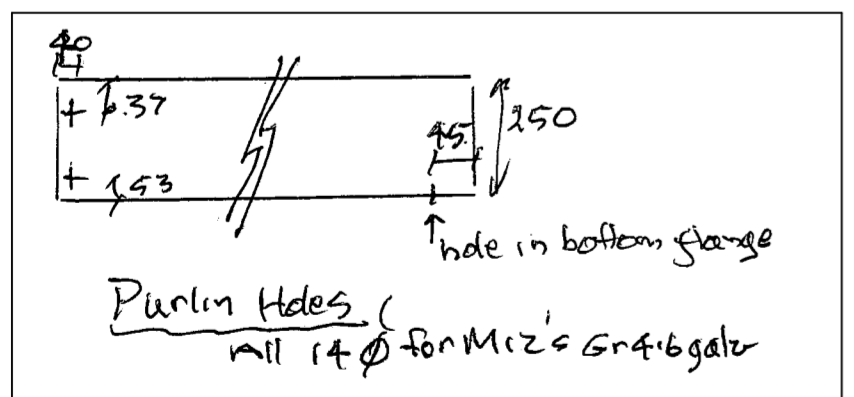 40
37
45
250
53
hole in bottom flange
Purlin Holes
All 14 Ø for M12's Gr4.6 galv